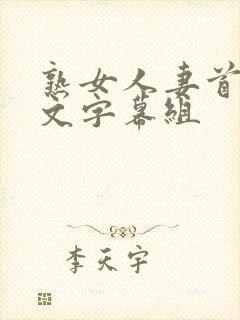 熟女人妻首
文字幕组
李天宇